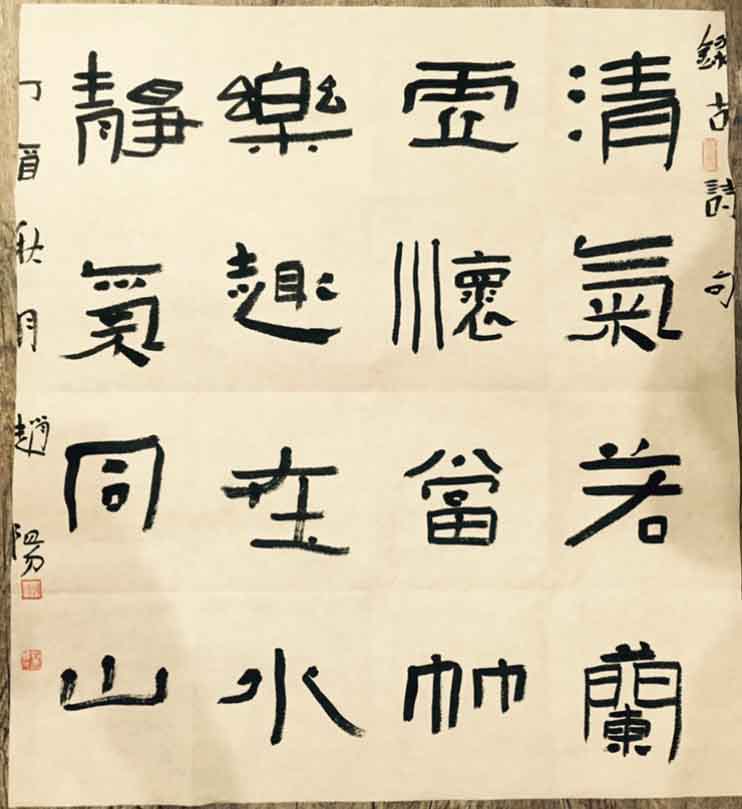 錄古詩句
清氣若蘭
虛懷當竹
樂趣在水
靜同山
丁酉秋月趙陽